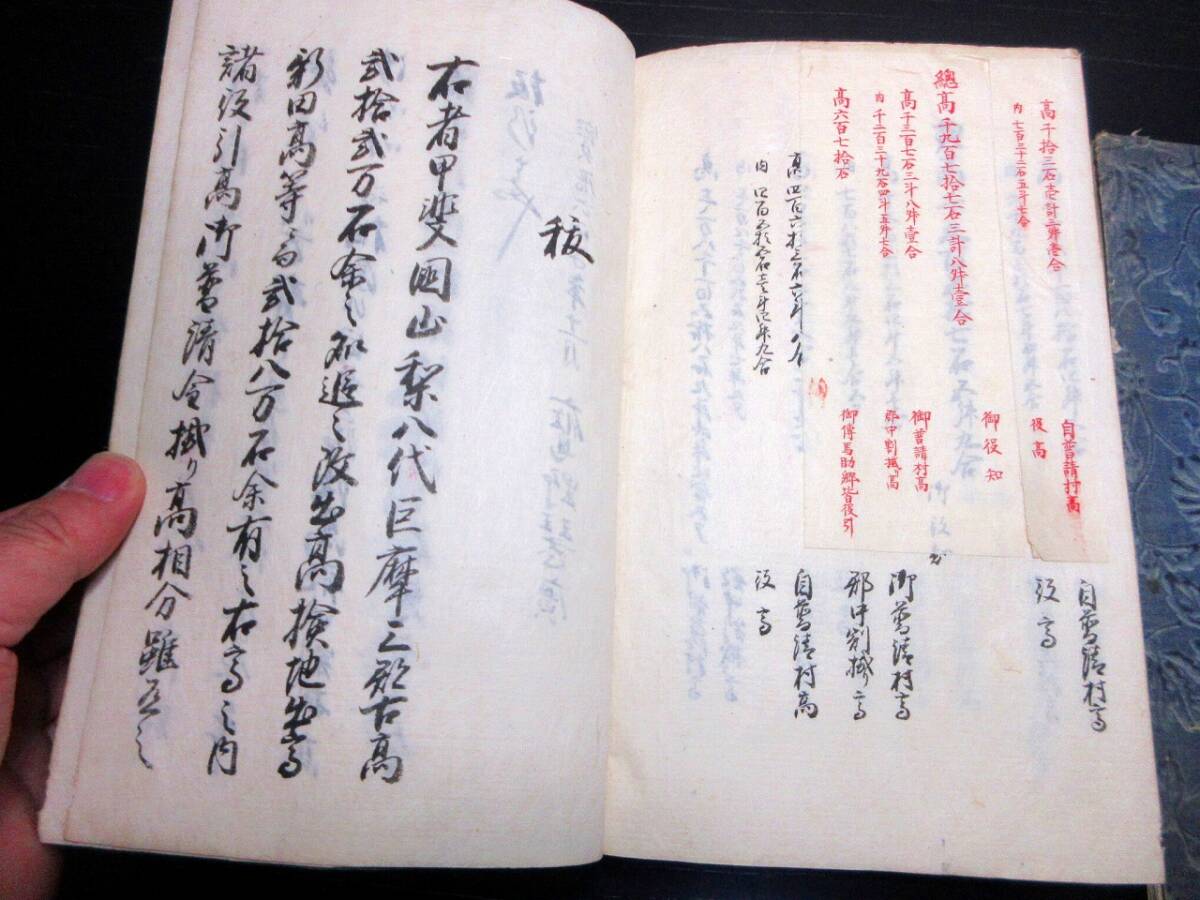 高千拾三石壱計三舛壱合
内 七百三十二石五斗七合
自普請村高
役高
總高千九百七拾七石三計八舛壹合
御役知
高千三百七石三斗八舛壹合
内 千二百三十九石四斗五舛七合
御普請村高
郡中割掛高
高六百七拾石
御傳馬助郷皆役引
自普請村高
役高
御普請村高
郡中割掛高
高四百六拾三石六斗八合
自普請村高
役高
跋
右者甲斐國山梨八代巨摩三郡古高
弐拾弐万石余之処追之改出高検地出高
新田高等ニ而弐拾八万石余有之右高之内
諸役引高御普請金掛り高相分雖有之